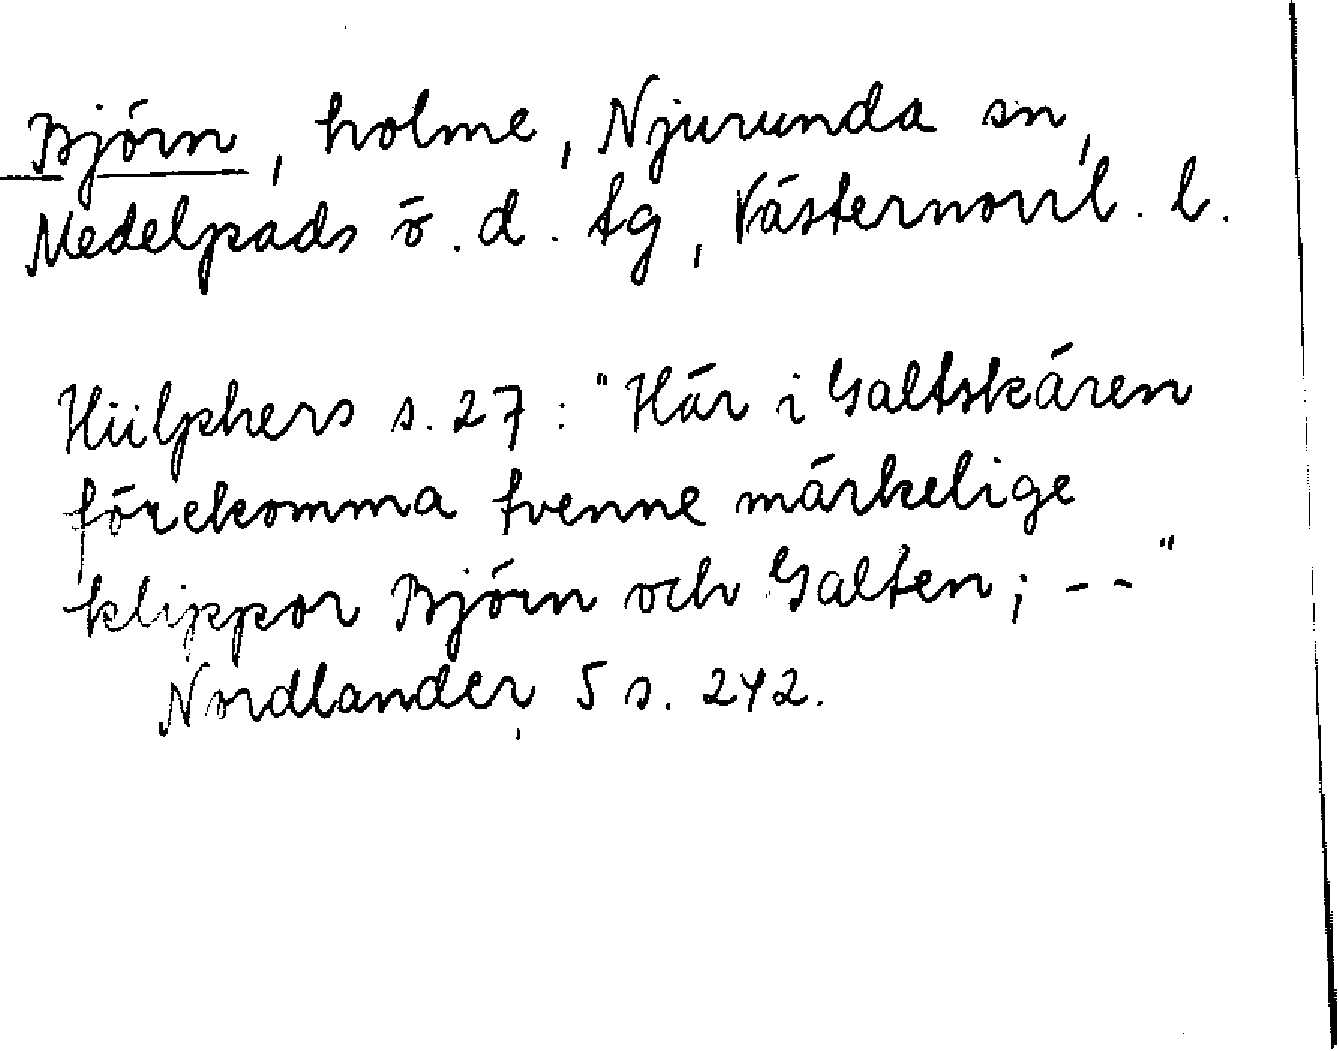 Björn, holme, Njurunda sn,
Medelpads ö. d. tg, Västernorrl. l.
Hülphers s. 27: "Här i Galtskären
förekomma tvenne märkelige
klippor Björn och Galten; -- "
Nordlander 5 s. 242.